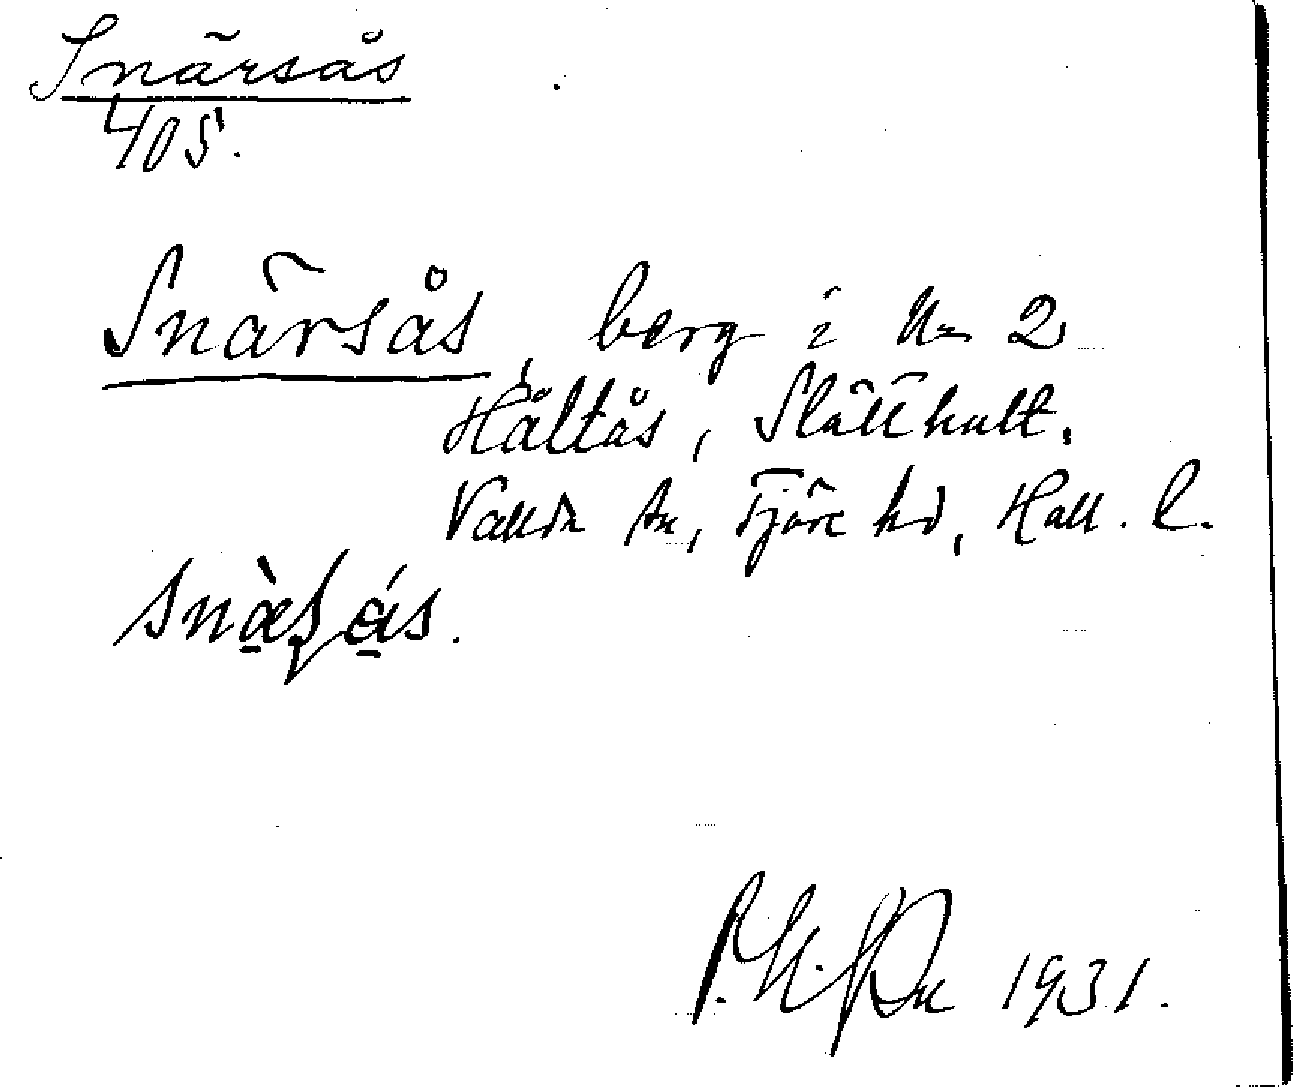 Snärsås
405.
Snärsås, berg i Nr 2
Håltås, Slätthult.
Vallda sn, Fjäre hd, Hall. l.
1931.